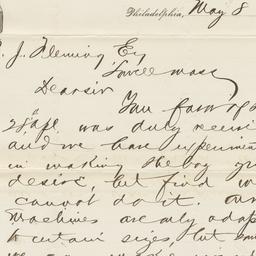 Philadelphia, May 8
J. Fleming Esq
Lowell Mass
Dear sir
Your favor of
28 Apl was duly receiv
and we have experimen
in making the
desire, but find w
cannot do it. our
machines are only adap
to certain sizes, but som